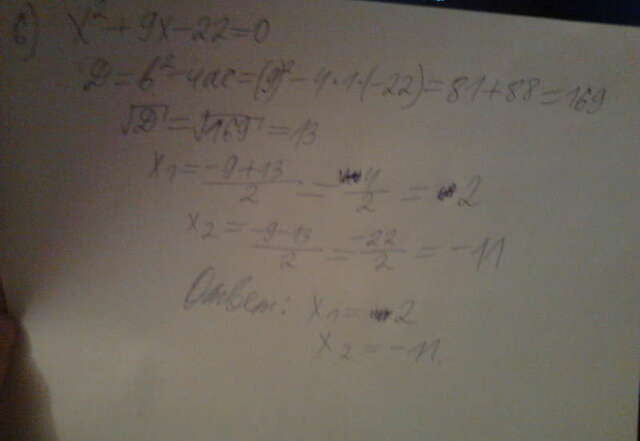 б) x² + 9x - 22 = 0
D = b² - 4ac = (9)² - 4·1·(-22) = 81 + 88 = 169
√D = √169 = 13
x₁ = (-9+13)/2 = 4/2 = 2
x₂ = (-9-13)/2 = (-22)/2 = -11
Ответ: x₁ = 2
x₂ = -11